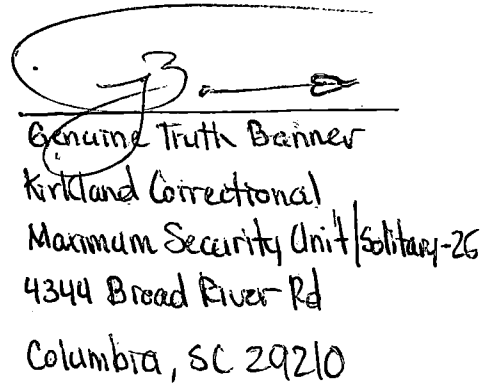 Genuine Truth Banner
Kirkland Correctional
Maximum Security Unit/Solitary-26
4344 Broad River Rd
Columbia, SC 29210